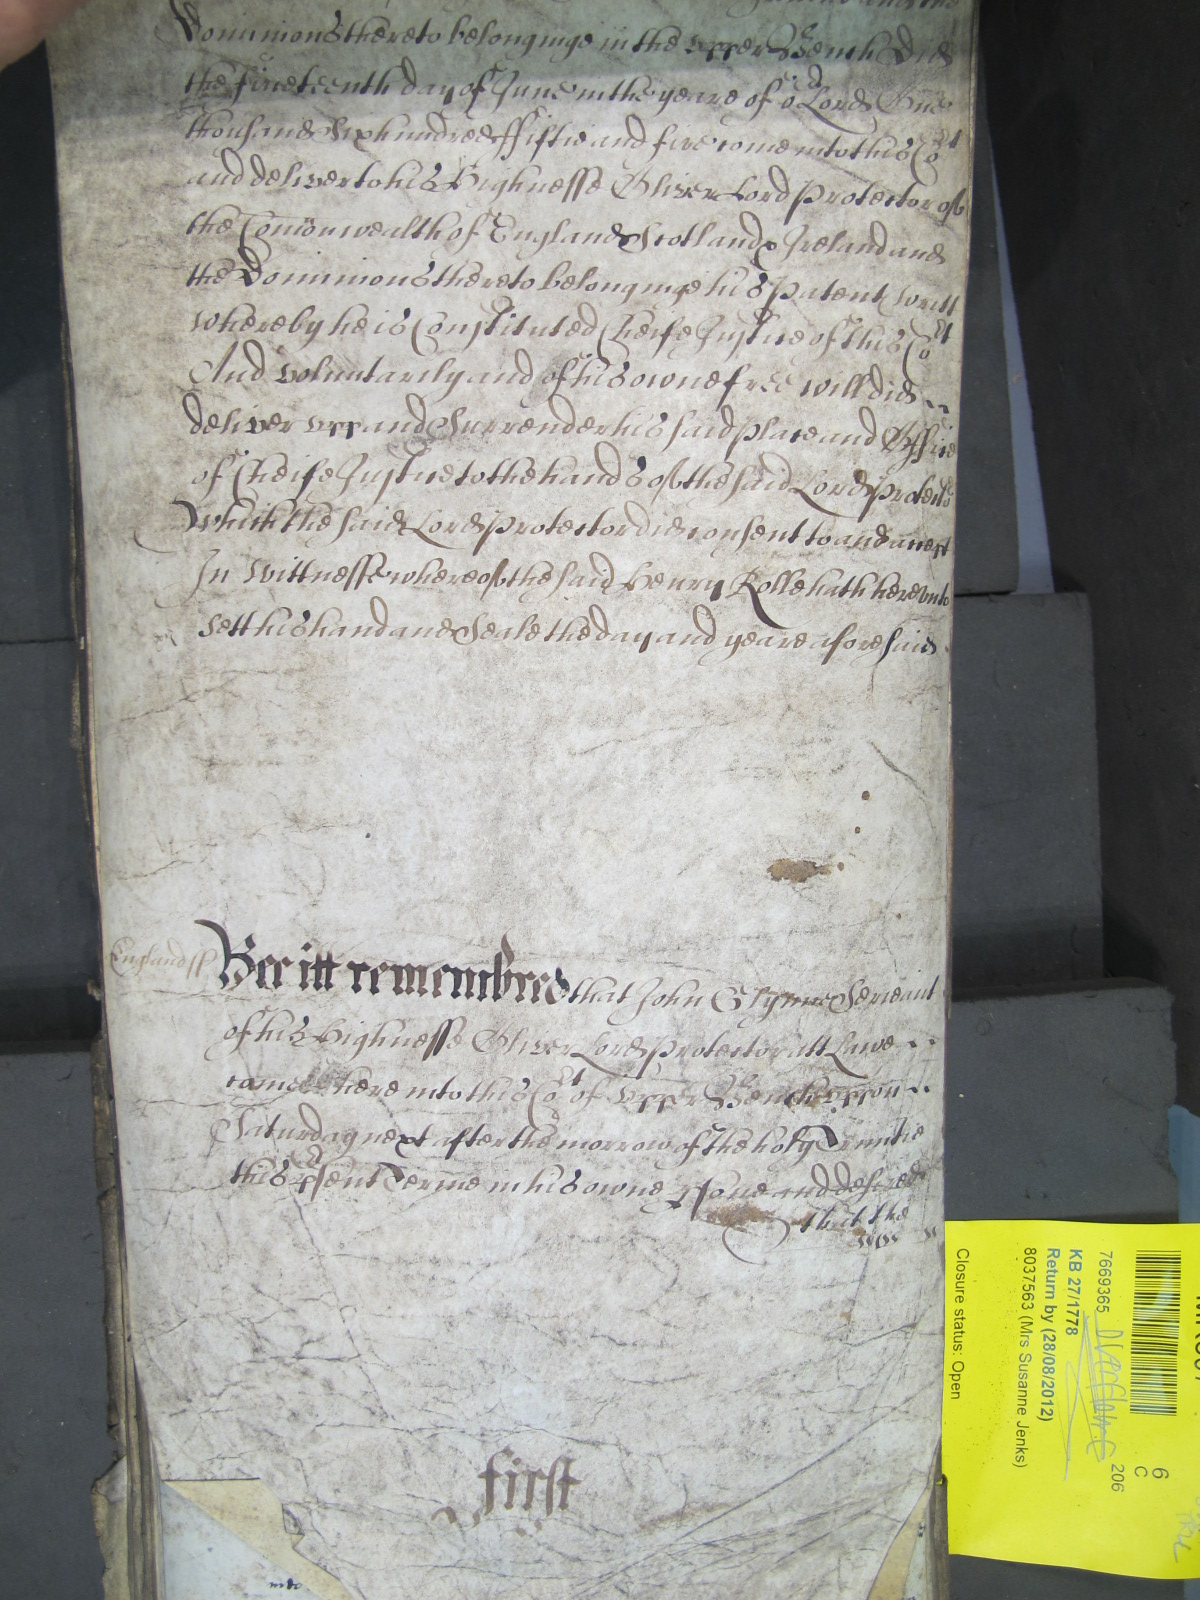 Dominions thereto belonginge in the upper Bench Did
the fineteenth day of June in the yeare of or Lord One
thousand Sixhundred ffiftie and five come into this Cort
and deliver to his Highnesse Oliver Lord Protector of
the Comonwealth of England Scotland & Ireland and
the Dominions thereto belonginge his Patent Writt
whereby he is Constituted Cheife Justice of this Cort
And voluntarily and of his owne free will did
deliver upp and Surrender his said place and Office
of Cheife Justice to the hands of the said Lord Protector
Which the said Lord Protector did consent to and accept
In Wittnesse whereof the said Henry Rolle hath hereunto
sett his hand and Seale the day and yeare aforesaid
England ss Bee itt remembred that John Glynne Serieant
of his Highnesse Oliver Lord Protector att Lawe
came here into this Cort of Upper Bench uppon
Saturday next after the morrow of the holy Trinitie
this psent Terme in his owne pson and desired
that the
first
6
C
206
7669365
KB 27/1778
Return by (28/08/2012)
8037563 (Mrs Susanne Jenks)
Closure status: Open